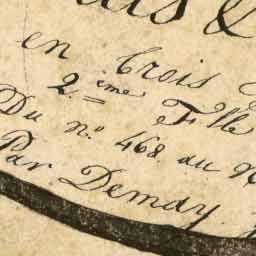 &
en trois
2.ème Flle
Du n.º 468 au N
Par Demay